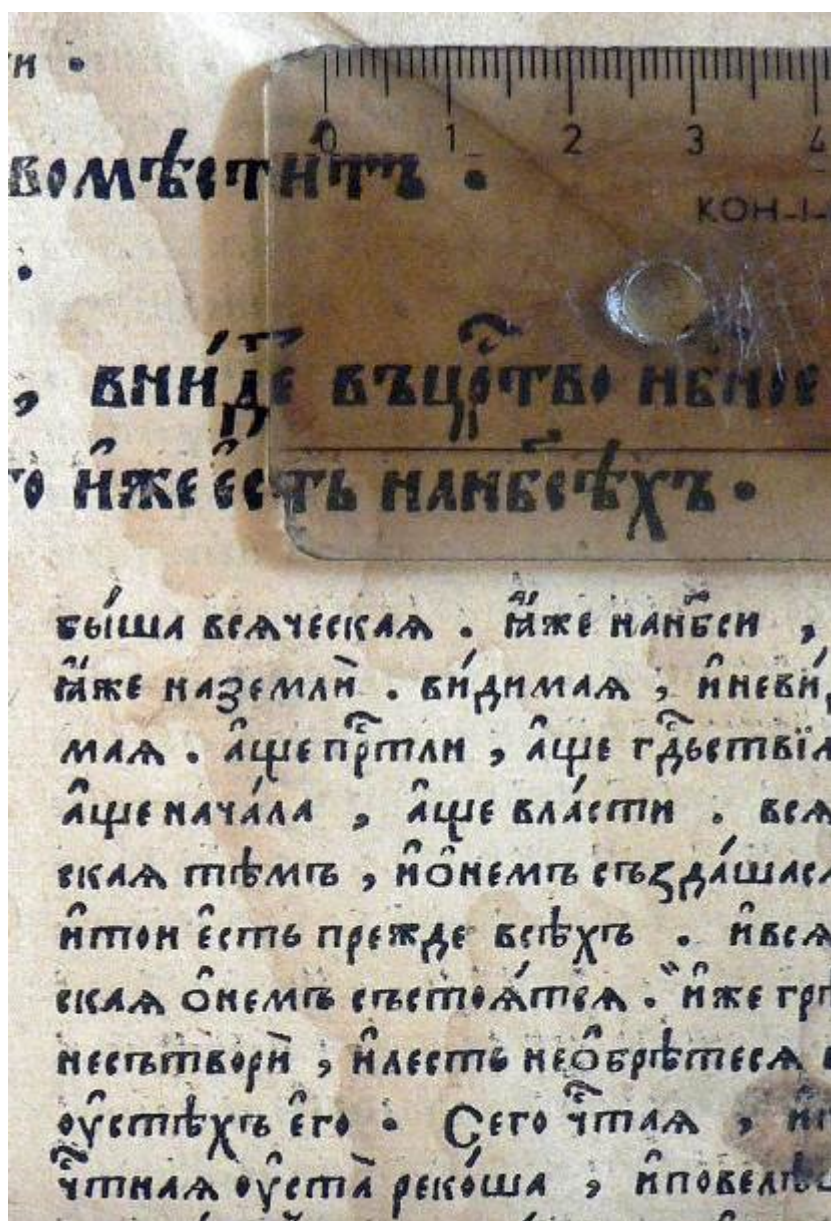 и ·
0 1 2 3 4
вомѣститъ ·
КОН-I-
·
, вни́де въцр҇тво нб҃ное
го и҆́же е҆́сть нанб҃сѣхъ ·
бы́ша всѧческаѧ . ꙗ҆́же нанб҃си ,
ꙗ҆́же наземлѝ . ви́димаѧ , и҆неви́
маѧ . а҆́ще пр҇тли , а҆́ще гд҇ьствїа
а҆́ще нача́ла , а҆́ще вла́сти .
скаѧ тѣмъ , и҆ѻ҆немъ създа́шасѧ
и҆той е҆́сть прежде всѣхъ .
скаѧ ѻ҆немъ състоѧ́тсѧ . и҆́же
несътворѝ , и҆лесть неѻ҆брѣтесѧ
оу҆стѣхъ е҆го · Сего ч҇таѧ ,
ч҇тнаѧ оу҆ста̀ реко́ша ,